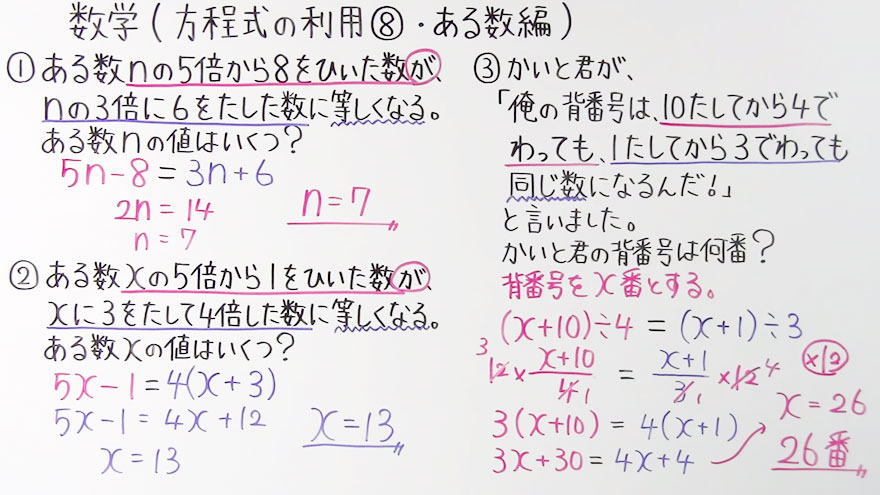 数学(方程式の利用⑧・ある数編)
① ある数nの5倍から8をひいた数が、
nの3倍に6をたした数に等しくなる。
ある数nの値はいくつ?
5n-8=3n+6
2n=14
n=7
n=7
② ある数xの5倍から1をひいた数が、
xに3をたして4倍した数に等しくなる。
ある数xの値はいくつ?
5x-1=4(x+3)
5x-1=4x+12
x=13
x=13
③ かいと君が、
「俺の背番号は、10たしてから4で
わっても、1たしてから3でわっても
同じ数になるんだ!」
と言いました。
かいと君の背番号は何番?
背番号をx番とする。
(x+10)÷4=(x+1)÷3
3 12×(x+10)/4 1 = (x+1)/3 1 ×12 4 ×12
3(x+10)=4(x+1)
3x+30=4x+4
x=26
26番